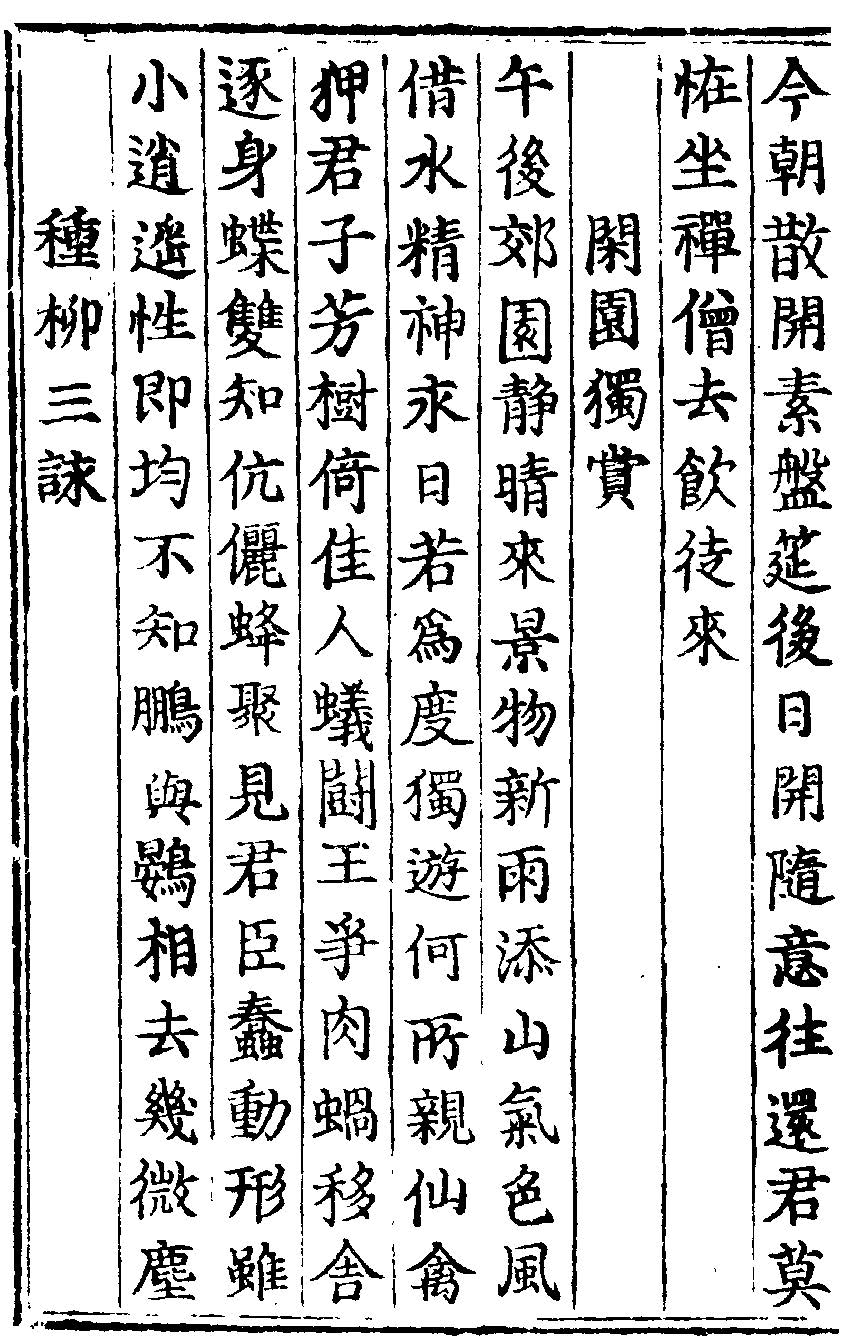 今朝㪚開素盤筵後日開隨意往還君莫
恠坐禪僧去飲徒來
閑園獨賞
午後郊園静晴來景物新雨添山氣色風
借水精神永日若爲度獨遊何所親仙禽
狎君子芳樹倚佳人蟻鬭王爭肉蝸移舎
逐身蝶雙知伉儷蜂聚見君臣蠢動形雖
小逍遥性即均不知鵬與鷃相去幾微塵
種柳三詠